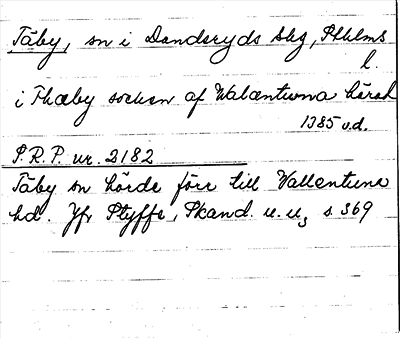 Täby, sn i Danderyds Skg, Sthlms
l.
i Thæby sockn af Walæntuna häredh
1385 u.d.
S.R.P. nr. 2182
Täby sn hörde förr till Vallentuna
hd. Jfr Styffe, Skand. u. u, s. 369